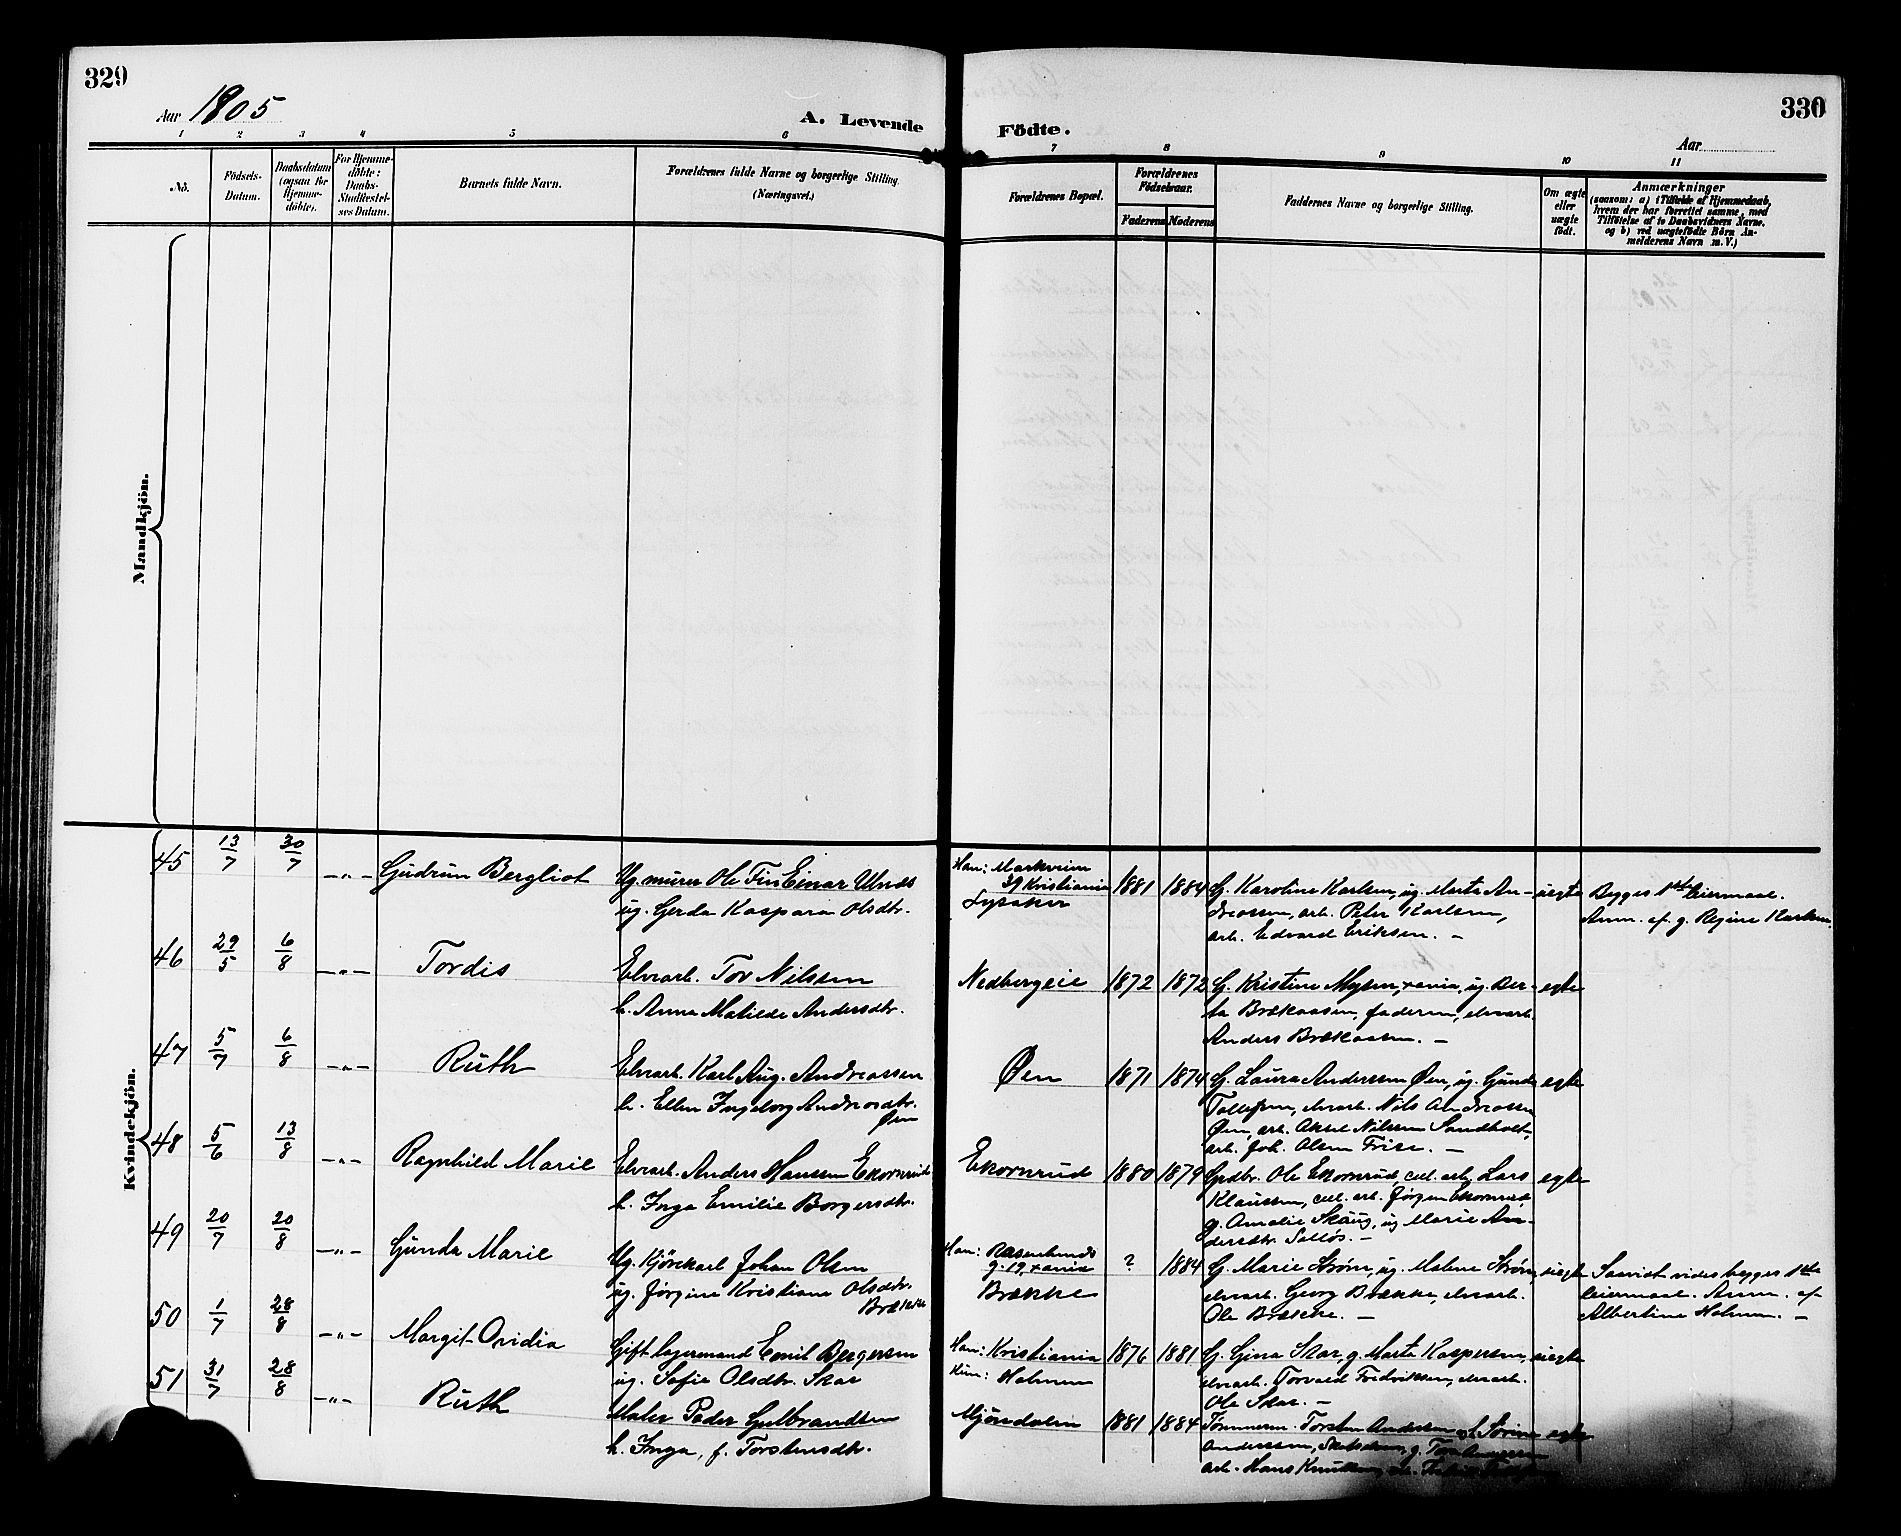 329
Aar 1905
A. Levende
Födte.
330
Aar
1 2 3 4 5 6 7 8 9 10 11
No.
Födsels-
Datum.
Daabsdatum
(ogsaa for
Hjemme-
döbte).
For Hjemme-
döbte:
Daabs-
Stadfæstel-
ses Datum.
Barnets fulde Navn.
Forældrenes fulde Navne og borgerlige Stilling.
(Næringsvei.)
Forældrenes Bopæl.
Forældrenes
Födselsaar.
Faderens
Moderens
Faddernes Navne og borgerlige Stilling.
Om ægte
eller
uægte
födt.
Anmærkninger
(saasom: a) i Tilfælde af Hjemmedaab,
hvem der har forrettet samme, med
Tilföielse af to Daabsvidners Navne,
og b) ved uægtefödte Börn An-
melderens Navn m. V.)
Mandkjön.
Kvindekjön.
45 13/7 30/7 -"- Gudrun Bergliot
Ug. murer Ole Finn Einar Ulnæs
ug. Gerda Kaspara Olsdtr.
Han: Markveien
39 Kristiania
Lysaker
1881 1884
G. Karoline Karlsen, ug. Marta An-
dreassen, arb. Peter Karlsen,
arb. Edvard Eriksen. –
uegte
Begges 1ste leiermaal.
Anm. af g. Regine Karlsen.
46 29/5 6/8 -"- Tordis
Elvearb. Tov Nilsen
h. Anna Matilde Andersdtr.
Nedbergeie
1872 1872
G. Kristine Mysen, xania, ug. Ber-
ta Brækaasen, faderen, elvearb.
Anders Brækaasen. –
egte
47 5/7 6/8 -"- Ruth
Elvearb. Karl Aug. Andreassen
h. Ellen Ingeborg Andreasdtr.
Øen
Øen
1871 1874
G. Laura Anderssen Øen, ug. Gunda
Tollefsen, elvearb. Nils Andreassen
Øen, arb. Aksel Nilssen Sandholt,
arb. Joh. Olsen Frise. –
egte
48 5/6 13/8 -"- Ragnhild Marie
Elvearb. Anders Hanssen Ekornrud
h. Inga Emilie Borgersdtr.
Ekornrud
1880 1879
Grdbr. Ole Ekornrud, cel. arb. Lars
Klaussen, cel. arb. Jørgen Ekornrud,
g. Amalie Skaug, ug. Marie An-
dersdtr. Solløs. –
egte
49 20/7 20/8 -"- Gunda Marie
Ug. Kjörekarl Johan Olsen
ug. Jørgine Kristiane Olsdtr.
Brække
Han: Rosenlunds
g. 19, xania
Brække
? 1884
G. Marie Strøm, ug. Malene Strøm,
elvearb. Georg Brække, elvearb.
Ole Brække. –
uegte
Saavidt vides begges 1ste
leiermaal. Anm. af
Albertine Holmen. –
50 1/7 28/8 -"- Margit Ovidia
Gift lagermand Emil Bergersen
ug. Sofie Olsdtr. Skar
Han: Kristiania
Hun: Holmen
1876 1881
G. Gina Skar, g. Marta Kaspersen,
elvearb. Torvald Fredriksen, elvearb.
Ole Skar. –
uegte
51 31/7 28/8 -"- Ruth
Maler Peder Gulbrandsen
h. Inga, f. Torstensdtr.
Mjöndalen
1881 1884
Tømmerm. Torsten Anderssen og h. Sörine
Anderssen,
arb. Hans Knudsen,
egte